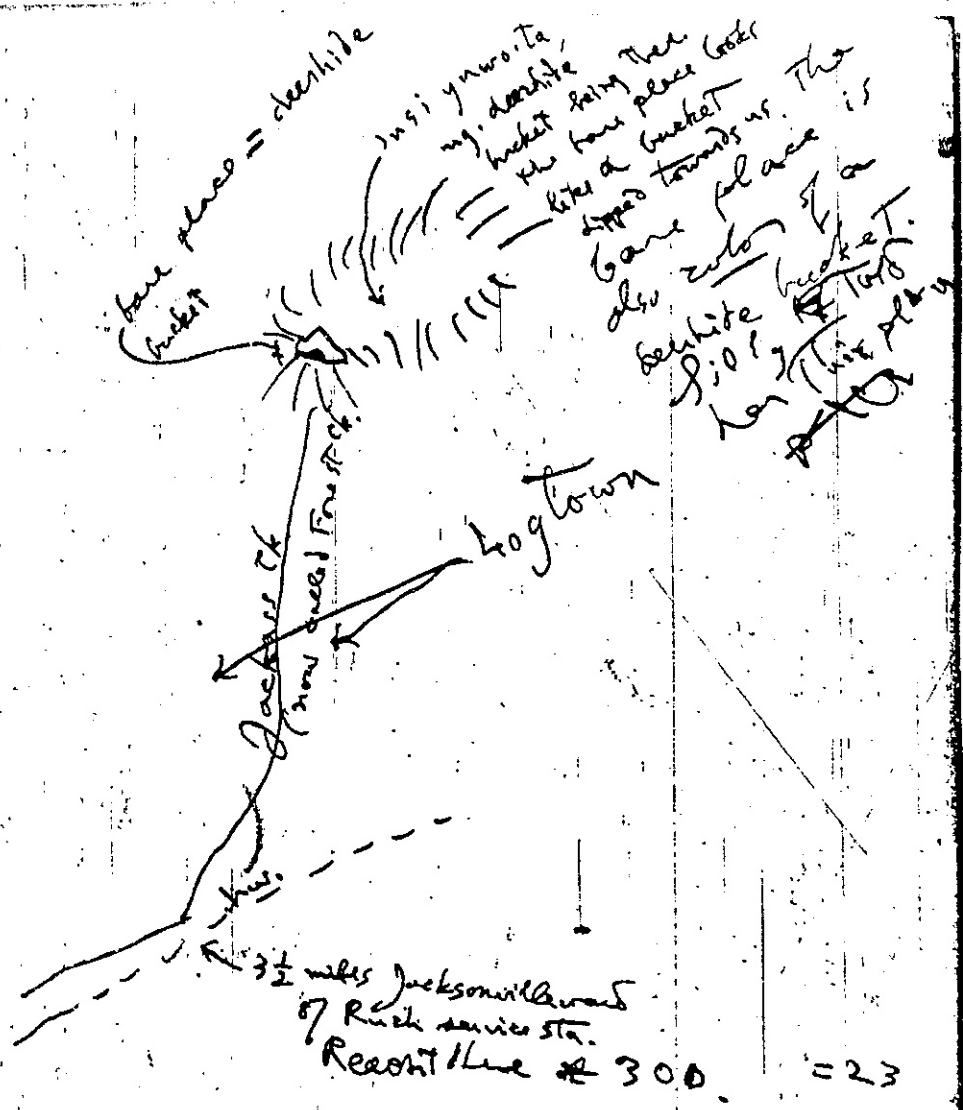 bare place = deerhide
bucket
mg. deerhide
bucket being there.
the bare place looks
like a bucket
dipped towards us. The
bare place is
also color of a
deerhide bucket.
Logtown
Jackass Ck
(now called Forest Ck.
hw.
3½ miles Jacksonvilleward
of Ruch service sta.
300 = 23